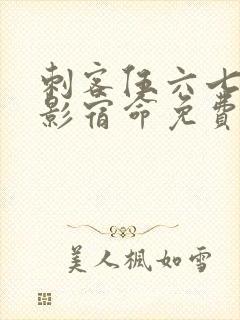 刺客伍六七
影宿命免费
美人枫如雪